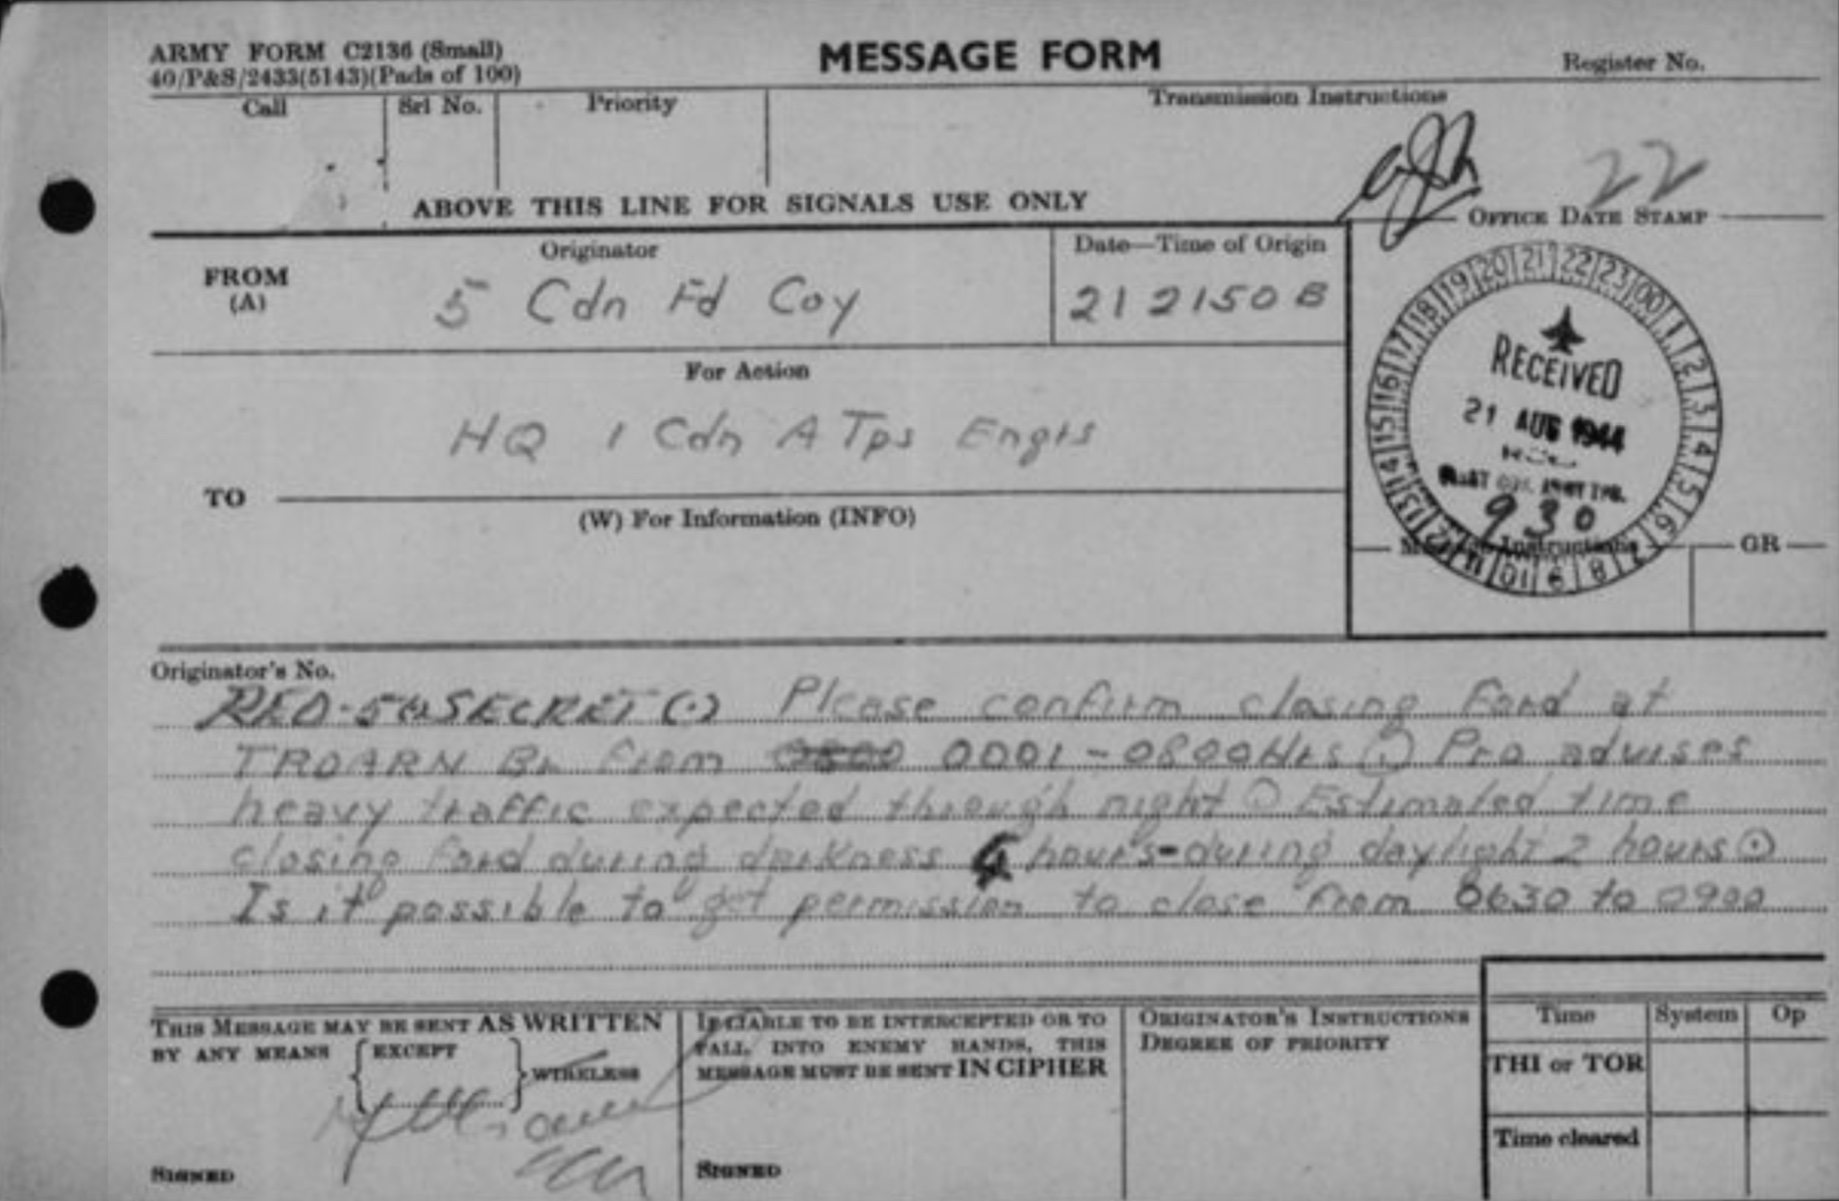 ARMY FORM C2136 (Small)
40/P&S/2433(5143)(Pads of 100)
MESSAGE FORM
Register No.
Call
Srl No.
Priority
Transmission Instructions
22
ABOVE THIS LINE FOR SIGNALS USE ONLY
OFFICE DATE STAMP
FROM
(A)
Originator
5 Cdn Fd Coy
Date—Time of Origin
212150B
For Action
HQ 1 Cdn A Tps Engrs
TO
(W) For Information (INFO)
19 20 21 22 23 00 1 2 3 4 5 6 7 8 9 10 11 12 13 14 15 16 17 18
RECEIVED
21 AUG 1944
930
Instructions
GR
Originator's No.
SECRET (.) Please confirm closing Ford at
TROARN Br from 0800 0001-0800Hrs (.) Pro advises
heavy traffic expected through night (.) Estimated time
closing ford during darkness 4 hours-during daylight 2 hours (.)
Is it possible to get permission to close from 0630 to 0900
THIS MESSAGE MAY BE SENT AS WRITTEN
BY ANY MEANS
EXCEPT
WIRELESS
SIGNED
IF LIABLE TO BE INTERCEPTED OR TO
FALL INTO ENEMY HANDS, THIS
MESSAGE MUST BE SENT IN CIPHER
SIGNED
ORIGINATOR'S INSTRUCTIONS
DEGREE OF PRIORITY
Time
System
Op
THI or TOR
Time cleared